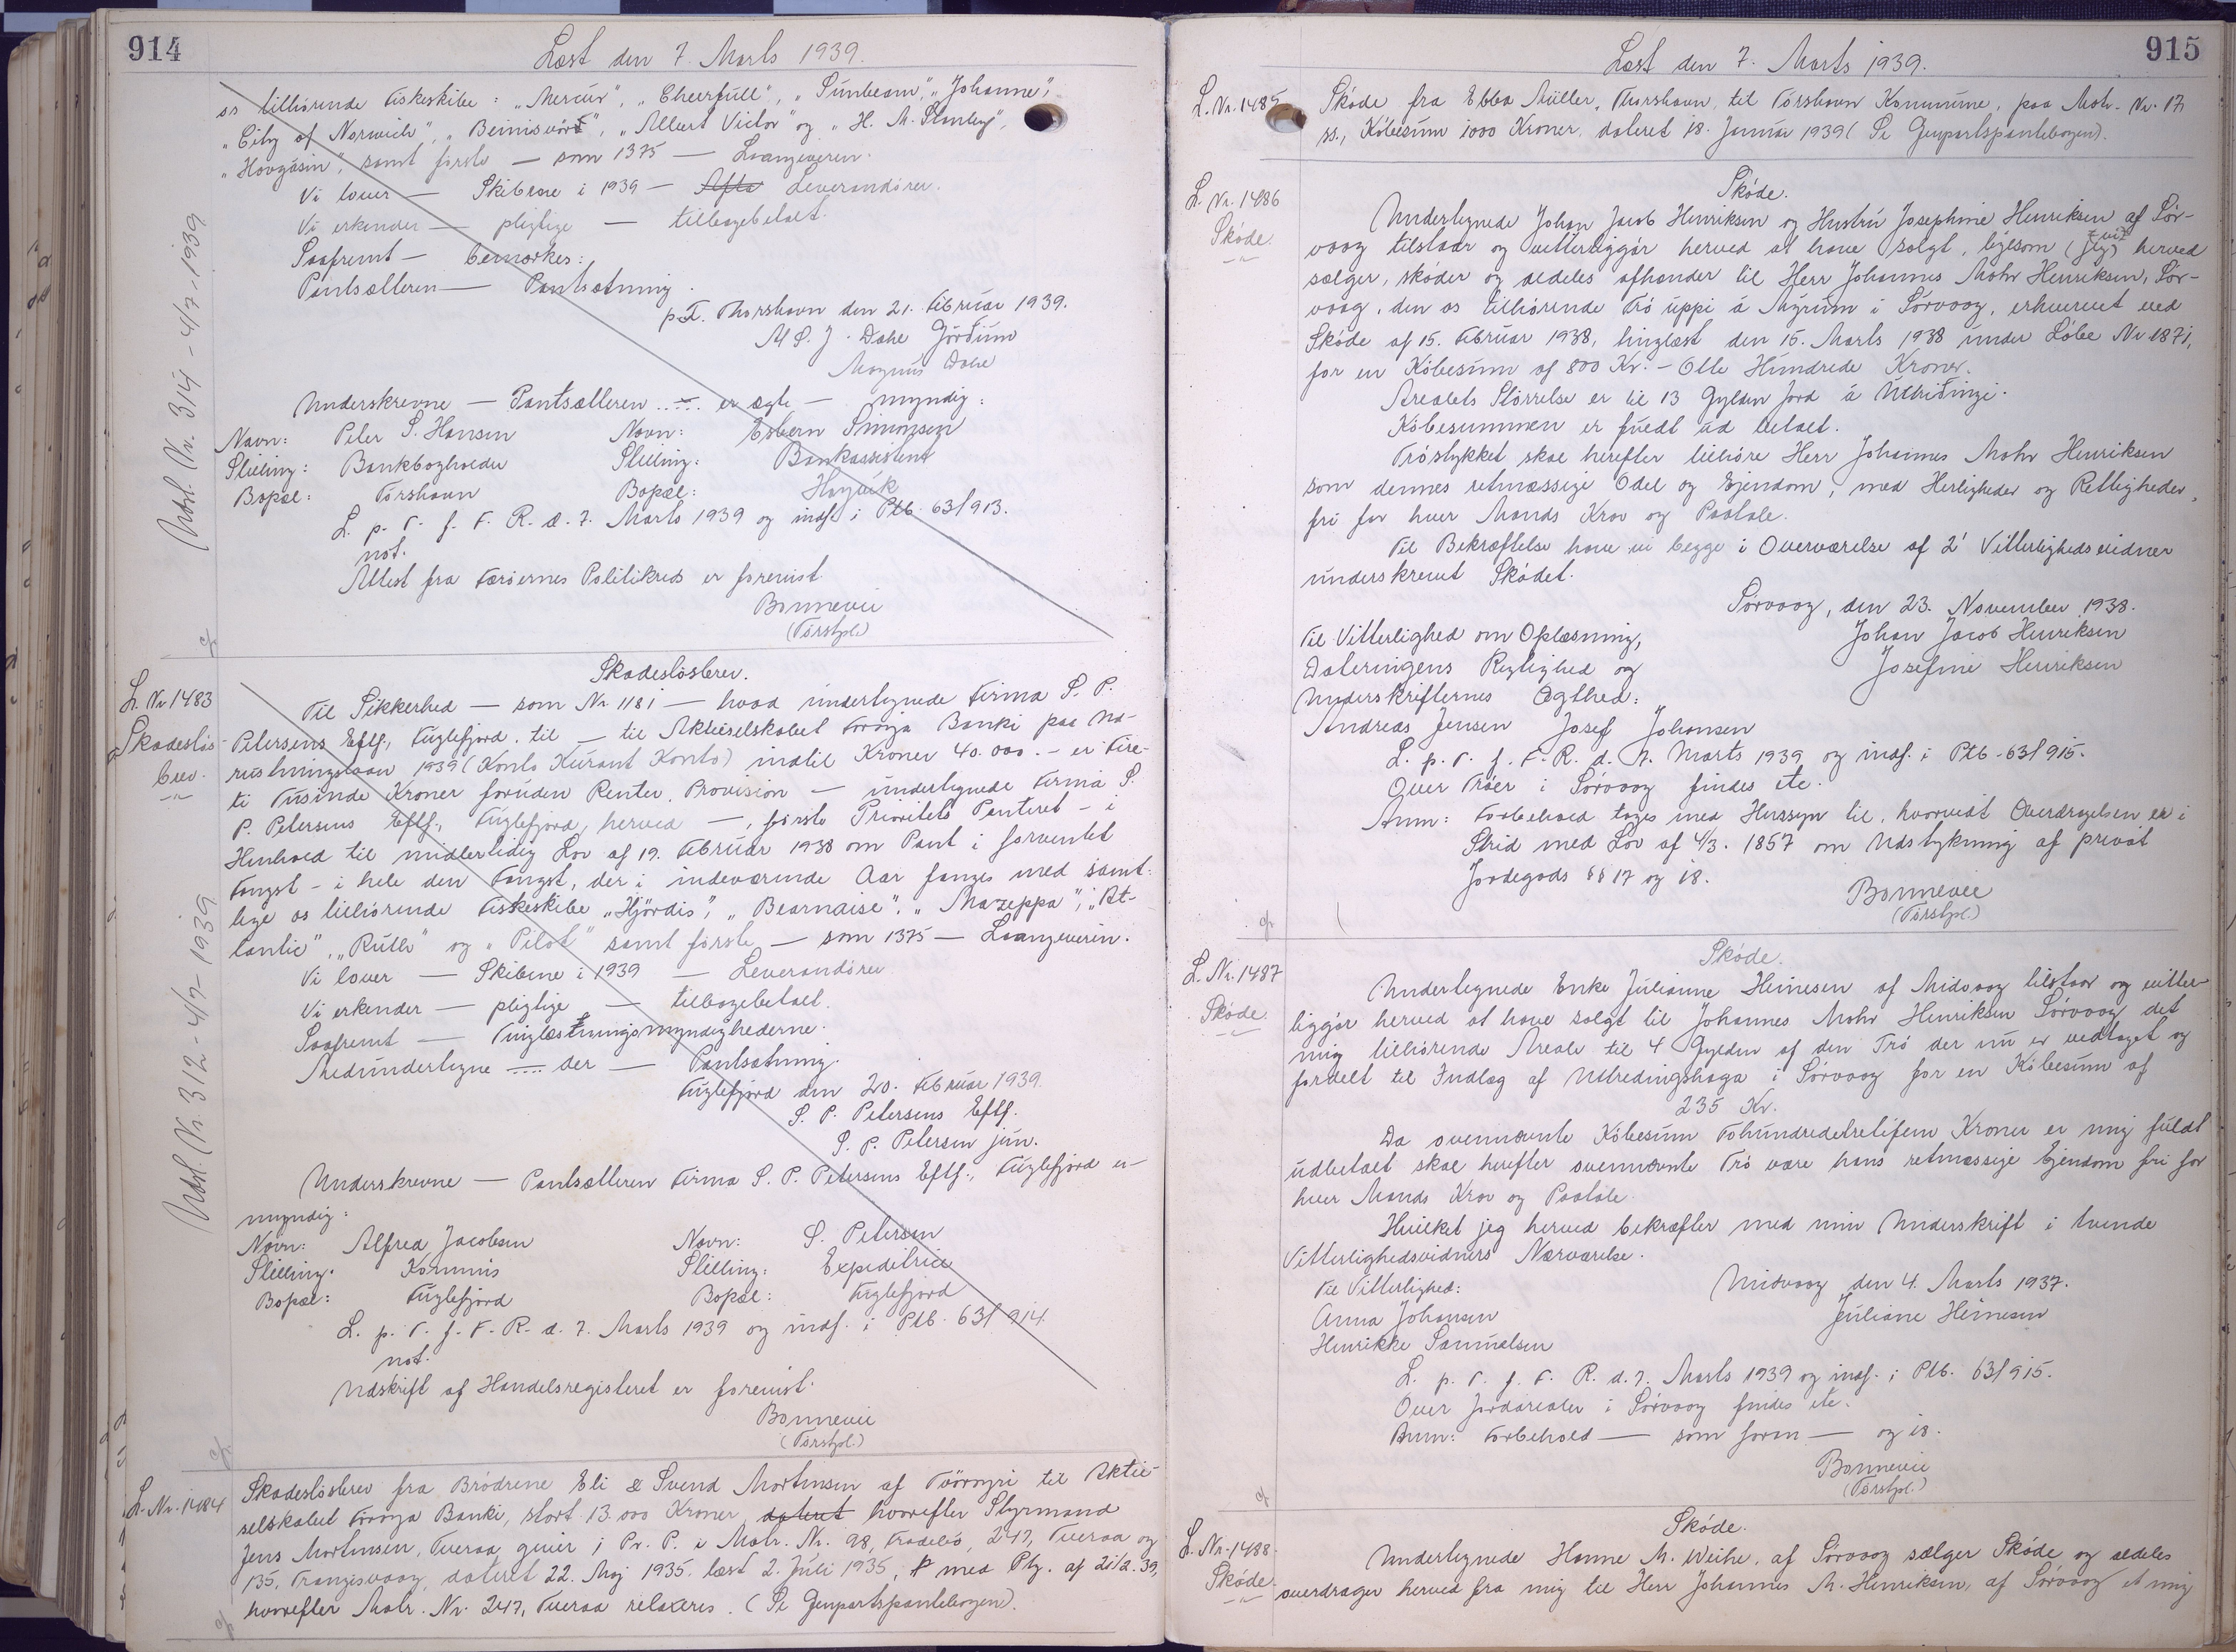 914
Læst den 7. Marts 1939.
os tilhörende Fiskeskibe: „Mercur”, „Cheerfull”, „Sunbeam”, „Johanne”,
„City of Norwich”, „Beinisvörð”, „Albert Victor” og „H. M. Stanley”,
„Hovgásin”, samt første — som 1375 — Laangiveren.
Vi lover — Skibene i 1939 — Leverandörer.
Vi erkender — pligtige — tilbagebetalt.
Saafremt — bemærkes:
Pantsætteren — Pantsætning.
p.T. Thorshavn den 21. Februar 1939.
M S. J. Dahl Görðum
Magnus Dahl
Underskrevne — Pantsætteren ..... er ægte — myndig:
Navn: Peter S. Hansen Navn: Esbern Simonsen
Stilling: Bankbogholder Stilling: Bankassistent
Bopæl: Tórshavn Bopæl: Hoyvík
L. p. T. f. F. R. d. 7. Marts 1939 og indf. i Ptb. 63/913.
not.
Attest fra Færöernes Politikreds er forevist.
Bonnevie
(Tórshpl.)
Udsl. Nr. 314 - 4/7 - 1939
L. Nr 1483
Skadeslös-
brev.
Skadeslösbrev.
Til Sikkerhed — som Nr 1181 — hvad undertegnede Firma S. P.
Petersens Eftf., Fuglefjord, til — til Aktieselskabet Føroya Banki paa Ud-
rustningslaan 1939 (Konto Kurant Konto) indtil Kroner 40.000. - er Fire-
ti Tusinde Kroner foruden Renter, Provision — undertegnede Firma S.
P. Petersens Eftf., Fuglefjord, herved —, første Prioritets Panteret - i
Henhold til midlertidig Lov af 19. Februar 1938 om Pant i forventet
Fangst - i hele den Fangst, der i indeværende Aar fanges med samt-
lige os tilhörende Fiskeskibe „Hjördis”, „Bearnaise”, „Mazeppa”, „At-
lantic”, „Ruth” og „Pilot” samt første — som 1375 — Laangiveren.
Vi lover — Skibene i 1939 — Leverandörer
Vi erkender — pligtige — tilbagebetalt.
Saafremt — Tinglæsningsmyndighederne.
Medundertegne ..... der — Pantsætning.
Fuglefjord den 20. Februar 1939.
S. P. Petersens Eftf.
S. P. Petersen jun.
Underskrevne — Pantsætteren Firma S. P. Petersens Eftf., Fuglefjord er —
myndig:
Navn: Alfred Jacobsen Navn: S. Petersen
Stilling: Kommis Stilling: Expeditrice
Bopæl: Fuglefjord Bopæl: Fuglefjord
L. p. T. f. F. R. d. 7. Marts 1939 og indf. i Ptb. 63/914.
not.
Udskrift af Handelsregisteret er forevist.
Bonnevie
(Tórshpl.)
Udsl. Nr. 312 - 4/7 - 1939
L. Nr. 1484
Skadeslösbrev fra Brödrene Eli & Svend Mortensen af Tvöroyri til Aktie-
selskabet Föroya Banki, stort 13.000 Kroner, dateret hvorefter Styrmand
Jens Mortensen, Tveraa, giver i Pr. P. i Matr. Nr. 98, Frodebö, 247, Tveraa og
135, Frangisvaag, dateret 22. Maj 1935, læst 2. Juli 1935, med Ptg. af 21/2. 39,
hvorefter Matr. Nr. 247, Tveraa relaxeres. (Se Genpartspantebogen).
915
Læst den 7. Marts 1939.
L. Nr. 1485
Sköde fra Ebba Müller, Thorshavn, til Tórshavn Kommune, paa Matr. Nr. 17
ss., Köbesum 1000 Kroner, dateret 18. Januar 1939 (Se Genpartspantebogen).
L. Nr. 1486
Sköde.
Sköde.
Undertegnede Johan Jacob Henriksen og Hustru Josephine Henriksen af Sör-
vaag tilstaar og vitterliggör herved at have solgt, ligesom (jeg) vi herved
sælger, sköder og aldeles afhænder til Herr Johannes Mohr Henriksen, Sör-
vaag, den os tilhörende Tró uppi á Mýrum i Sörvaag, erhvervet ved
Sköde af 15. Februar 1938, tinglæst den 15. Marts 1938 under Löbe Nr 1871,
for en Köbesum af 800 Kr. - Otte Hundrede Kroner.
Arealets Störrelse er til 13 Gylden Jord á Uttriðingi.
Köbesummen er fuldt ud betalt.
Tróstykket skal herefter tilhöre Herr Johannes Mohr Henriksen
som dennes retmæssige Odel og Ejendom, med Herligheder og Rettigheder,
fri for hver Mands Krav og Paatale.
Til Bekræftelse have vi begge i Overværelse af 2' Vitterlighedsvidner
underskrevet Sködet.
Sörvaag, den 23. November 1938.
Til Vitterlighed om Oplæsning, Johan Jacob Henriksen
Dateringens Rigtighed og Josefine Henriksen
Underskrifternes Ægthed:
Andreas Jensen Josef Johansen
L. p. T. f. F. R. d. 7. Marts 1939 og indf. i Ptb. 63/915.
Over Tröer i Sörvaag findes etc.
Anm: Forbehold tages med Hensyn til, hvorvidt Overdragelsen er i
Strid med Lov af 4/3. 1857 om Udstykning af privat
Jordegods §§ 17 og 18.
Bonnevie
(Tórshpl.)
L. Nr. 1487
Sköde.
Sköde.
Undertegnede Enke Julianne Heinesen af Midvaag tilstaar og vitter-
liggör herved at have solgt til Johannes Mohr Henriksen Sörvaag det
mig tilhörende Areale til 4 Gylden af den Tró der nu er vedtaget og
fordelt til Indlæg af Uttredingshaga i Sörvaag for en Köbesum af
235 Kr.
Da ovennævnte Köbesum Tohundredetretifem Kroner er mig fuldt
udbetalt skal herefter ovennævnte Tró være hans retmæssige Ejendom fri for
hver Mands Krav og Paatale.
Hvilket jeg herved bekræfter med min Underskrift i tvende
Vitterlighedsvidners Nærværelse.
Til Vitterlighed: Midvaag den 4. Marts 1937.
Anna Johansen Juliane Heinesen
Henrikke Samuelsen
L. p. T. f. F. R. d. 7. Marts 1939 og indf. i Ptb. 63/915.
Over Jordarealer i Sörvaag findes etc.
Anm: Forbehold — som foran — og 18.
Bonnevie
(Tórshpl.)
L. Nr. 1488
Sköde.
Sköde.
Undertegnede Hanne M. Weihe, af Sörvaag sælger Sköde og aldeles
overdrager herved fra mig til Herr Johannes M. Henriksen, af Sörvaag et mig